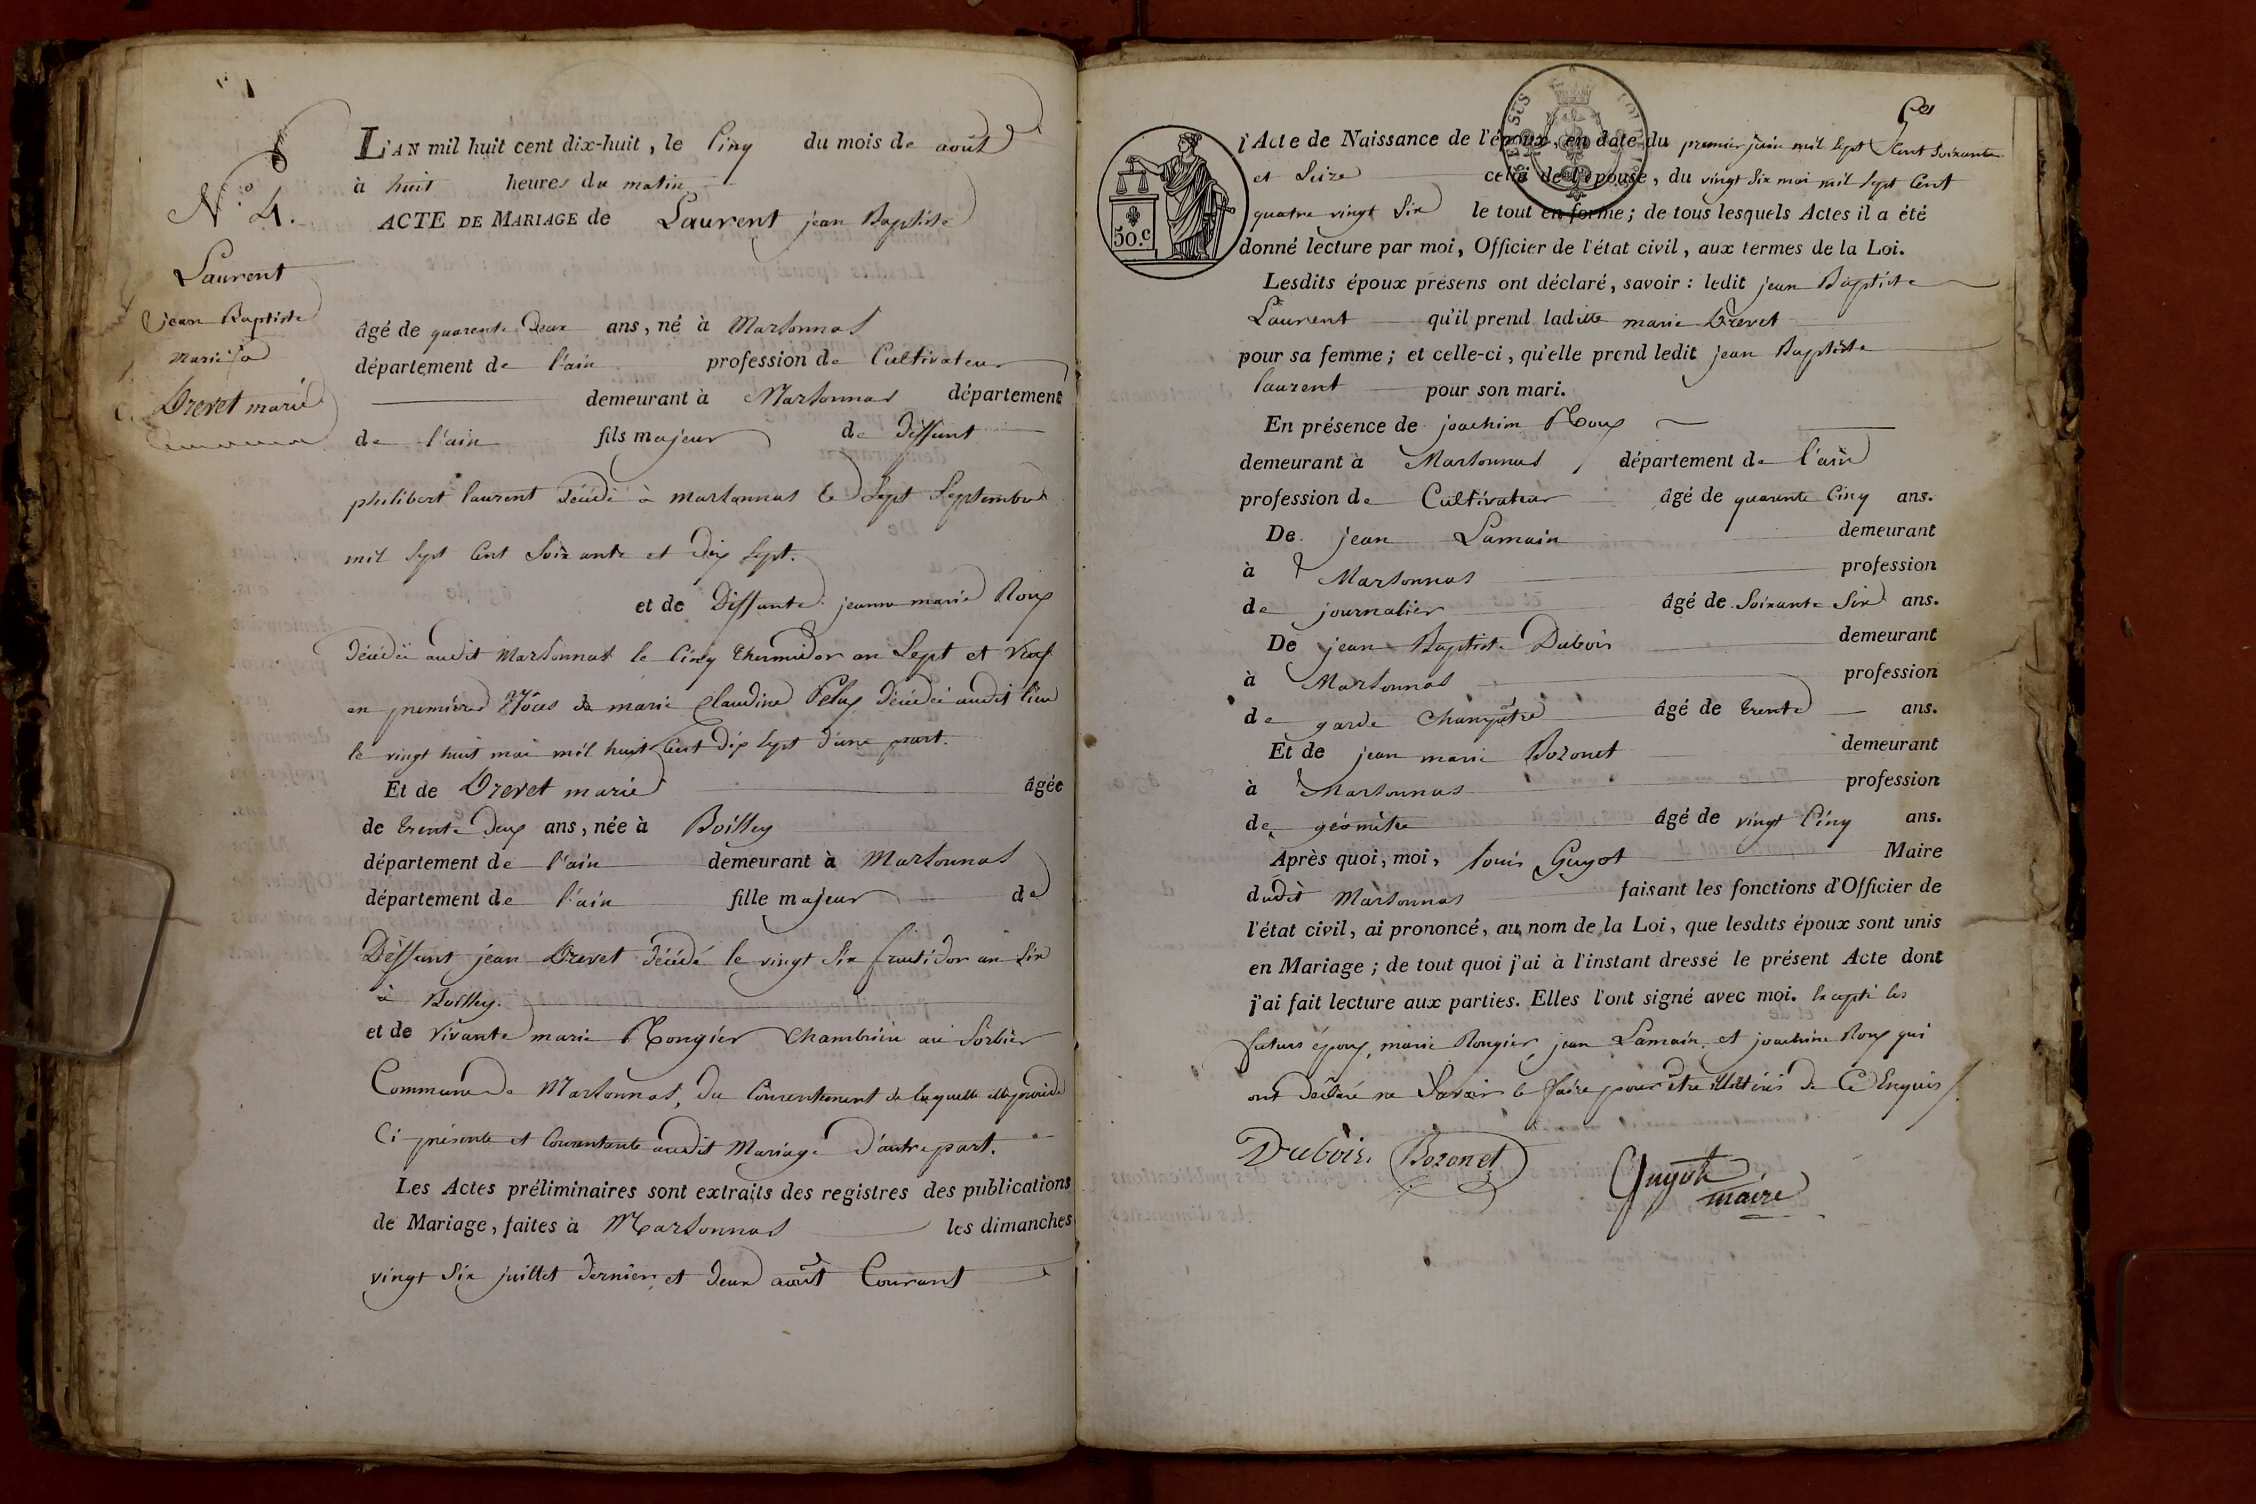 N.º 4.
Laurent
jean Baptiste
marié à
Drevet marie
L'AN mil huit cent dix-huit, le Cinq du mois de aoûst
à huit heures du matin
ACTE DE MARIAGE de Laurent jean Baptiste
âgé de quarente deux ans, né à Marsonnas
département de l'ain profession de Cultivateur
demeurant à Marsonnas département
de l'ain fils majeur de deffunt
philibert laurent décédé à marsonnas le Sept Septembre
mil Sept Cent Soixante et dix Sept.
et de deffunte jeanne marie Roux
décédée audit Marsonnas le Cinq thermidor an Sept et veuf
en premières Nôces de marie Claudine décédée audit lieu
le vingt huit mai mil huit Cent dix Sept d'une part.
Et de Drevet marie âgée
de trente deux ans, née à Boissey
département de l'ain demeurant à Marsonnas
département de l'ain fille majeur de
Deffunt jean Drevet décédé le vingt Six fructidor an Six
à Boissey.
et de vivante marie Rongier Chambrière au Sorbier
Commune de Marsonnas, du Consentement de laquelle elle procède
Ci présente et Consentante audit Mariage d'autre part.
Les Actes préliminaires sont extraits des registres des publications
de Mariage, faites à Marsonnas les dimanches
vingt Six juillet dernier et deux aoûst Courant
l'Acte de Naissance de l'époux, en date du premier juin mil Sept Cent Soixante
et Seize celui de l'épouse, du vingt Six mai mil Sept Cent
quatre vingt Six le tout en forme; de tous lesquels Actes il a été
50.c
donné lecture par moi, Officier de l'état civil, aux termes de la Loi.
Lesdits époux présens ont déclaré, savoir: ledit jean Baptiste
Laurent qu'il prend ladite marie Drevet
pour sa femme; et celle-ci, qu'elle prend ledit jean Baptiste
laurent pour son mari.
En présence de joachim Roux
demeurant à Marsonnas département de l'ain
profession de Cultivateur âgé de quarente Cinq ans.
De jean Lamain demeurant
à Marsonnas profession
de journalier âgé de Soixante Six ans.
De jean Baptiste Dubois demeurant
à Marsonnas profession
de garde Champêtre âgé de trente ans.
Et de jean marie Bozonet demeurant
à Marsonnas profession
de géomètre âgé de vingt Cinq ans.
Après quoi, moi, louis Guyot Maire
dudit Marsonnas faisant les fonctions d'Officier de
l'état civil, ai prononcé, au nom de la Loi, que lesdits époux sont unis
en Mariage; de tout quoi j'ai à l'instant dressé le présent Acte dont
j'ai fait lecture aux parties. Elles l'ont signé avec moi. Excepté les
futurs époux, marie Rongier, jean Lamain et joachim Roux qui
ont déclaré ne Savoir le faire pour être illétérés de Ce Enquis
Dubois. Bozonet
Guyot
maire